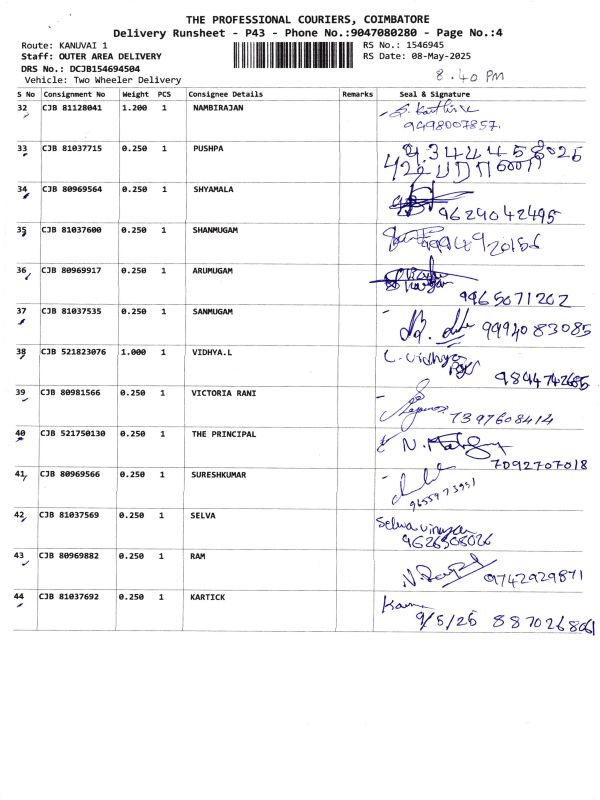 THE PROFESSIONAL COURIERS, COIMBATORE
Delivery Runsheet - P43 - Phone No.:9047080280 - Page No.:4
Route: KANUVAI 1 RS No.: 1546945
Staff: OUTER AREA DELIVERY RS Date: 08-May-2025
DRS No.: DCJB154694504
Vehicle: Two Wheeler Delivery 8.40 PM
S No Consignment No Weight PCS Consignee Details Remarks Seal & Signature
32 CJB 81128041 1.200 1 NAMBIRAJAN
9498007857.
33 CJB 81037715 0.250 1 PUSHPA
34 CJB 80969564 0.250 1 SHYAMALA
9629042495
35 CJB 81037600 0.250 1 SHANMUGAM
36 CJB 80969917 0.250 1 ARUMUGAM
9965071202
37 CJB 81037535 0.250 1 SANMUGAM
9994083085
38 CJB 521823076 1.000 1 VIDHYA.L L. Vidhya
9844742685
39 CJB 80981566 0.250 1 VICTORIA RANI
7397608414
40 CJB 521750130 0.250 1 THE PRINCIPAL
7092707018
41 CJB 80969566 0.250 1 SURESHKUMAR
9655973951
42 CJB 81037569 0.250 1 SELVA
9626508026
43 CJB 80969882 0.250 1 RAM
9742929871
44 CJB 81037692 0.250 1 KARTICK
9/5/25 8870268061